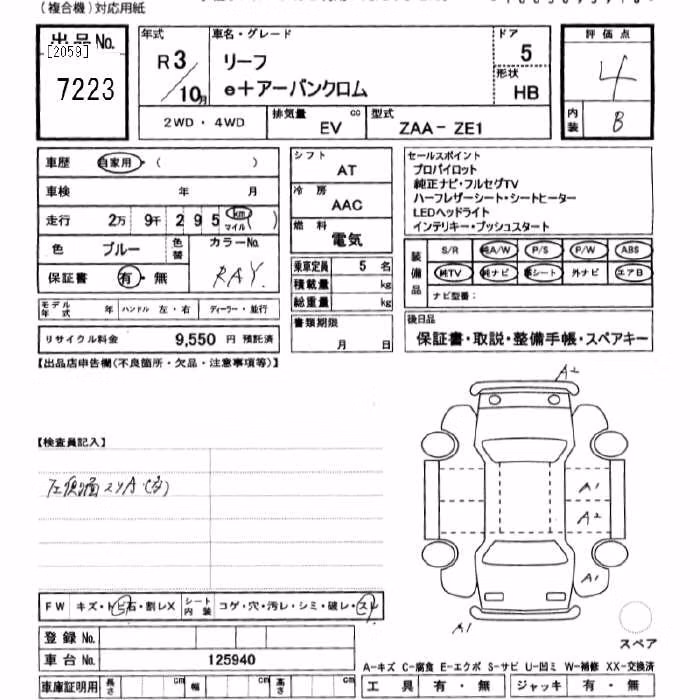 (複合機)対応用紙
出品No.
[2059]
7223
年式
R3/10月
車名・グレード
リーフ
e+アーバンクロム
ドア
5
形状
HB
評価点
4
内装
B
2WD・4WD
排気量
cc
EV
型式
ZAA-ZE1
車歴 自家用・( )
車検 年 月
走行 2万 9千 2 9 5 km マイル ( )
色 ブルー 色替 カラーNo.
RAY.
保証書 有・無
モデル年式 年 ハンドル 左・右 ディーラー・並行
リサイクル料金 9,550 円 預託済
シフト
AT
冷房
AAC
燃料
電気
乗車定員 5 名
積載量 kg
総重量 kg
書類期限
月 日
セールスポイント
プロパイロット
純正ナビ・フルセグTV
ハーフレザーシート・シートヒーター
LEDヘッドライト
インテリキー・プッシュスタート
装備品
S/R 純A/W P/S P/W ABS
純TV 純ナビ 革シート 外ナビ エアB
ナビ型番:
後日品
保証書・取説・整備手帳・スペアキー
【出品店申告欄(不良箇所・欠品・注意事項等)】
【検査員記入】
A2
A1
A2
A1
A1
スペア
FW キズ・トビ石・割レX シート内装 コゲ・穴・汚レ・シミ・破レ・スレ
登録No.
車台No. 125940
車庫証明用 長さ cm 幅 cm 高さ cm
A-キズ C-腐食 E-エクボ S-サビ U-凹ミ W-補修 XX-交換済
工具 有・無 ジャッキ 有・無